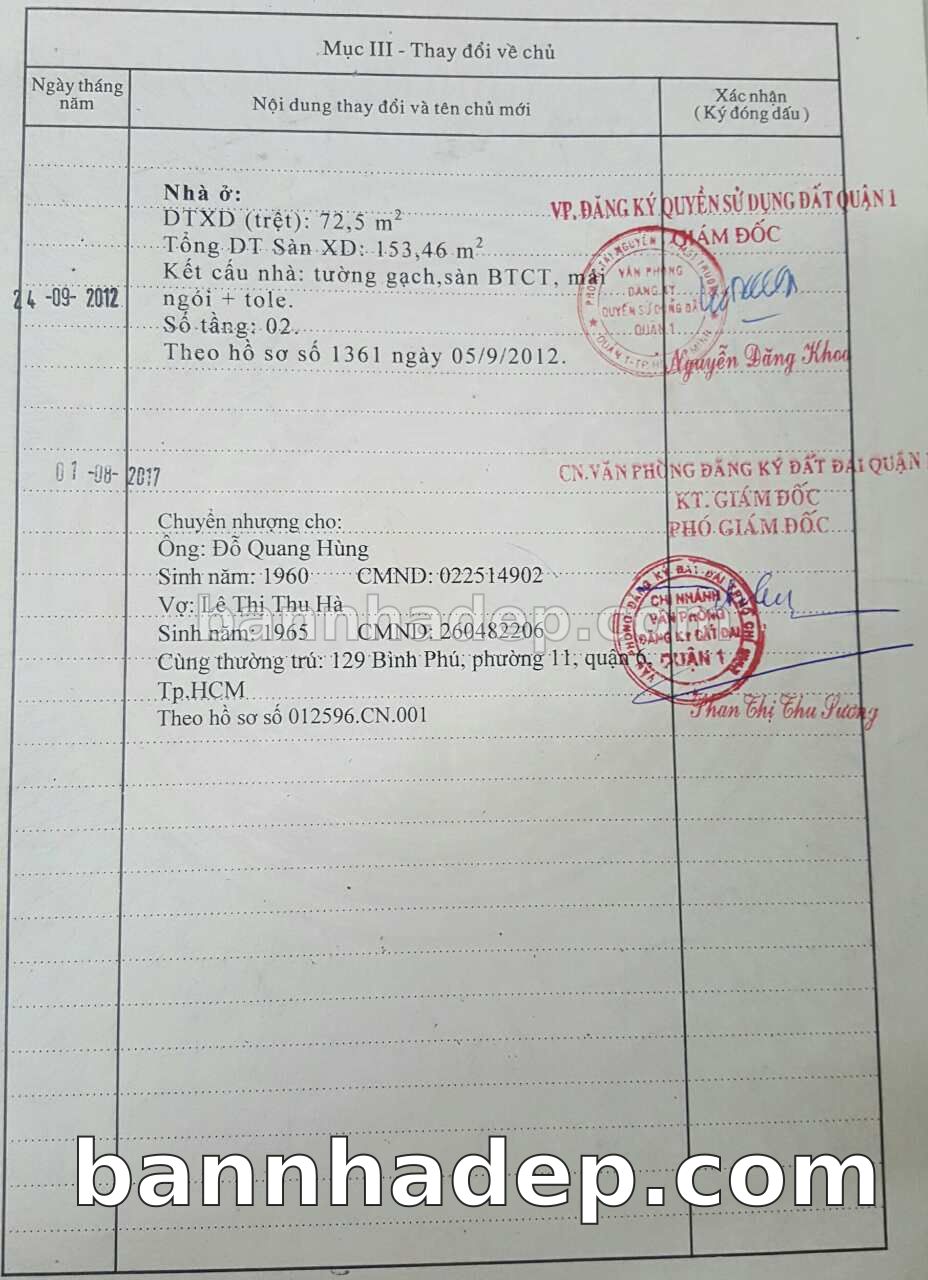 Mục III - Thay đổi về chủ
Ngày tháng
năm
Nội dung thay đổi và tên chủ mới
Xác nhận
( Ký đóng dấu )
Nhà ở:
DTXD (trệt): 72,5 m²
Tổng DT Sàn XD: 153,46 m²
Kết cấu nhà: tường gạch,sàn BTCT, mái
ngói + tole.
Số tầng: 02.
Theo hồ sơ số 1361 ngày 05/9/2012.
24 -09- 2012
VP. ĐĂNG KÝ QUYỀN SỬ DỤNG ĐẤT QUẬN 1
GIÁM ĐỐC
VĂN PHÒNG
ĐĂNG KÝ
QUYỀN SỬ DỤNG ĐẤT
QUẬN 1
Nguyễn Đăng Khoa
01 -08- 2017
CN.VĂN PHÒNG ĐĂNG KÝ ĐẤT ĐAI QUẬN
KT. GIÁM ĐỐC
PHÓ GIÁM ĐỐC
Chuyển nhượng cho:
Ông: Đỗ Quang Hùng
Sinh năm: 1960 CMND: 022514902
Vợ: Lê Thị Thu Hà
Sinh năm: 1965 CMND: 260482206
Cùng thường trú: 129 Bình Phú, phường 11, quận 6,
Tp.HCM
Theo hồ sơ số 012596.CN.001
CHI NHÁNH
VĂN PHÒNG
ĐĂNG KÝ ĐẤT ĐAI
QUẬN 1
Phan Thị Thu Sương
bannhadep.com
bannhadep.com